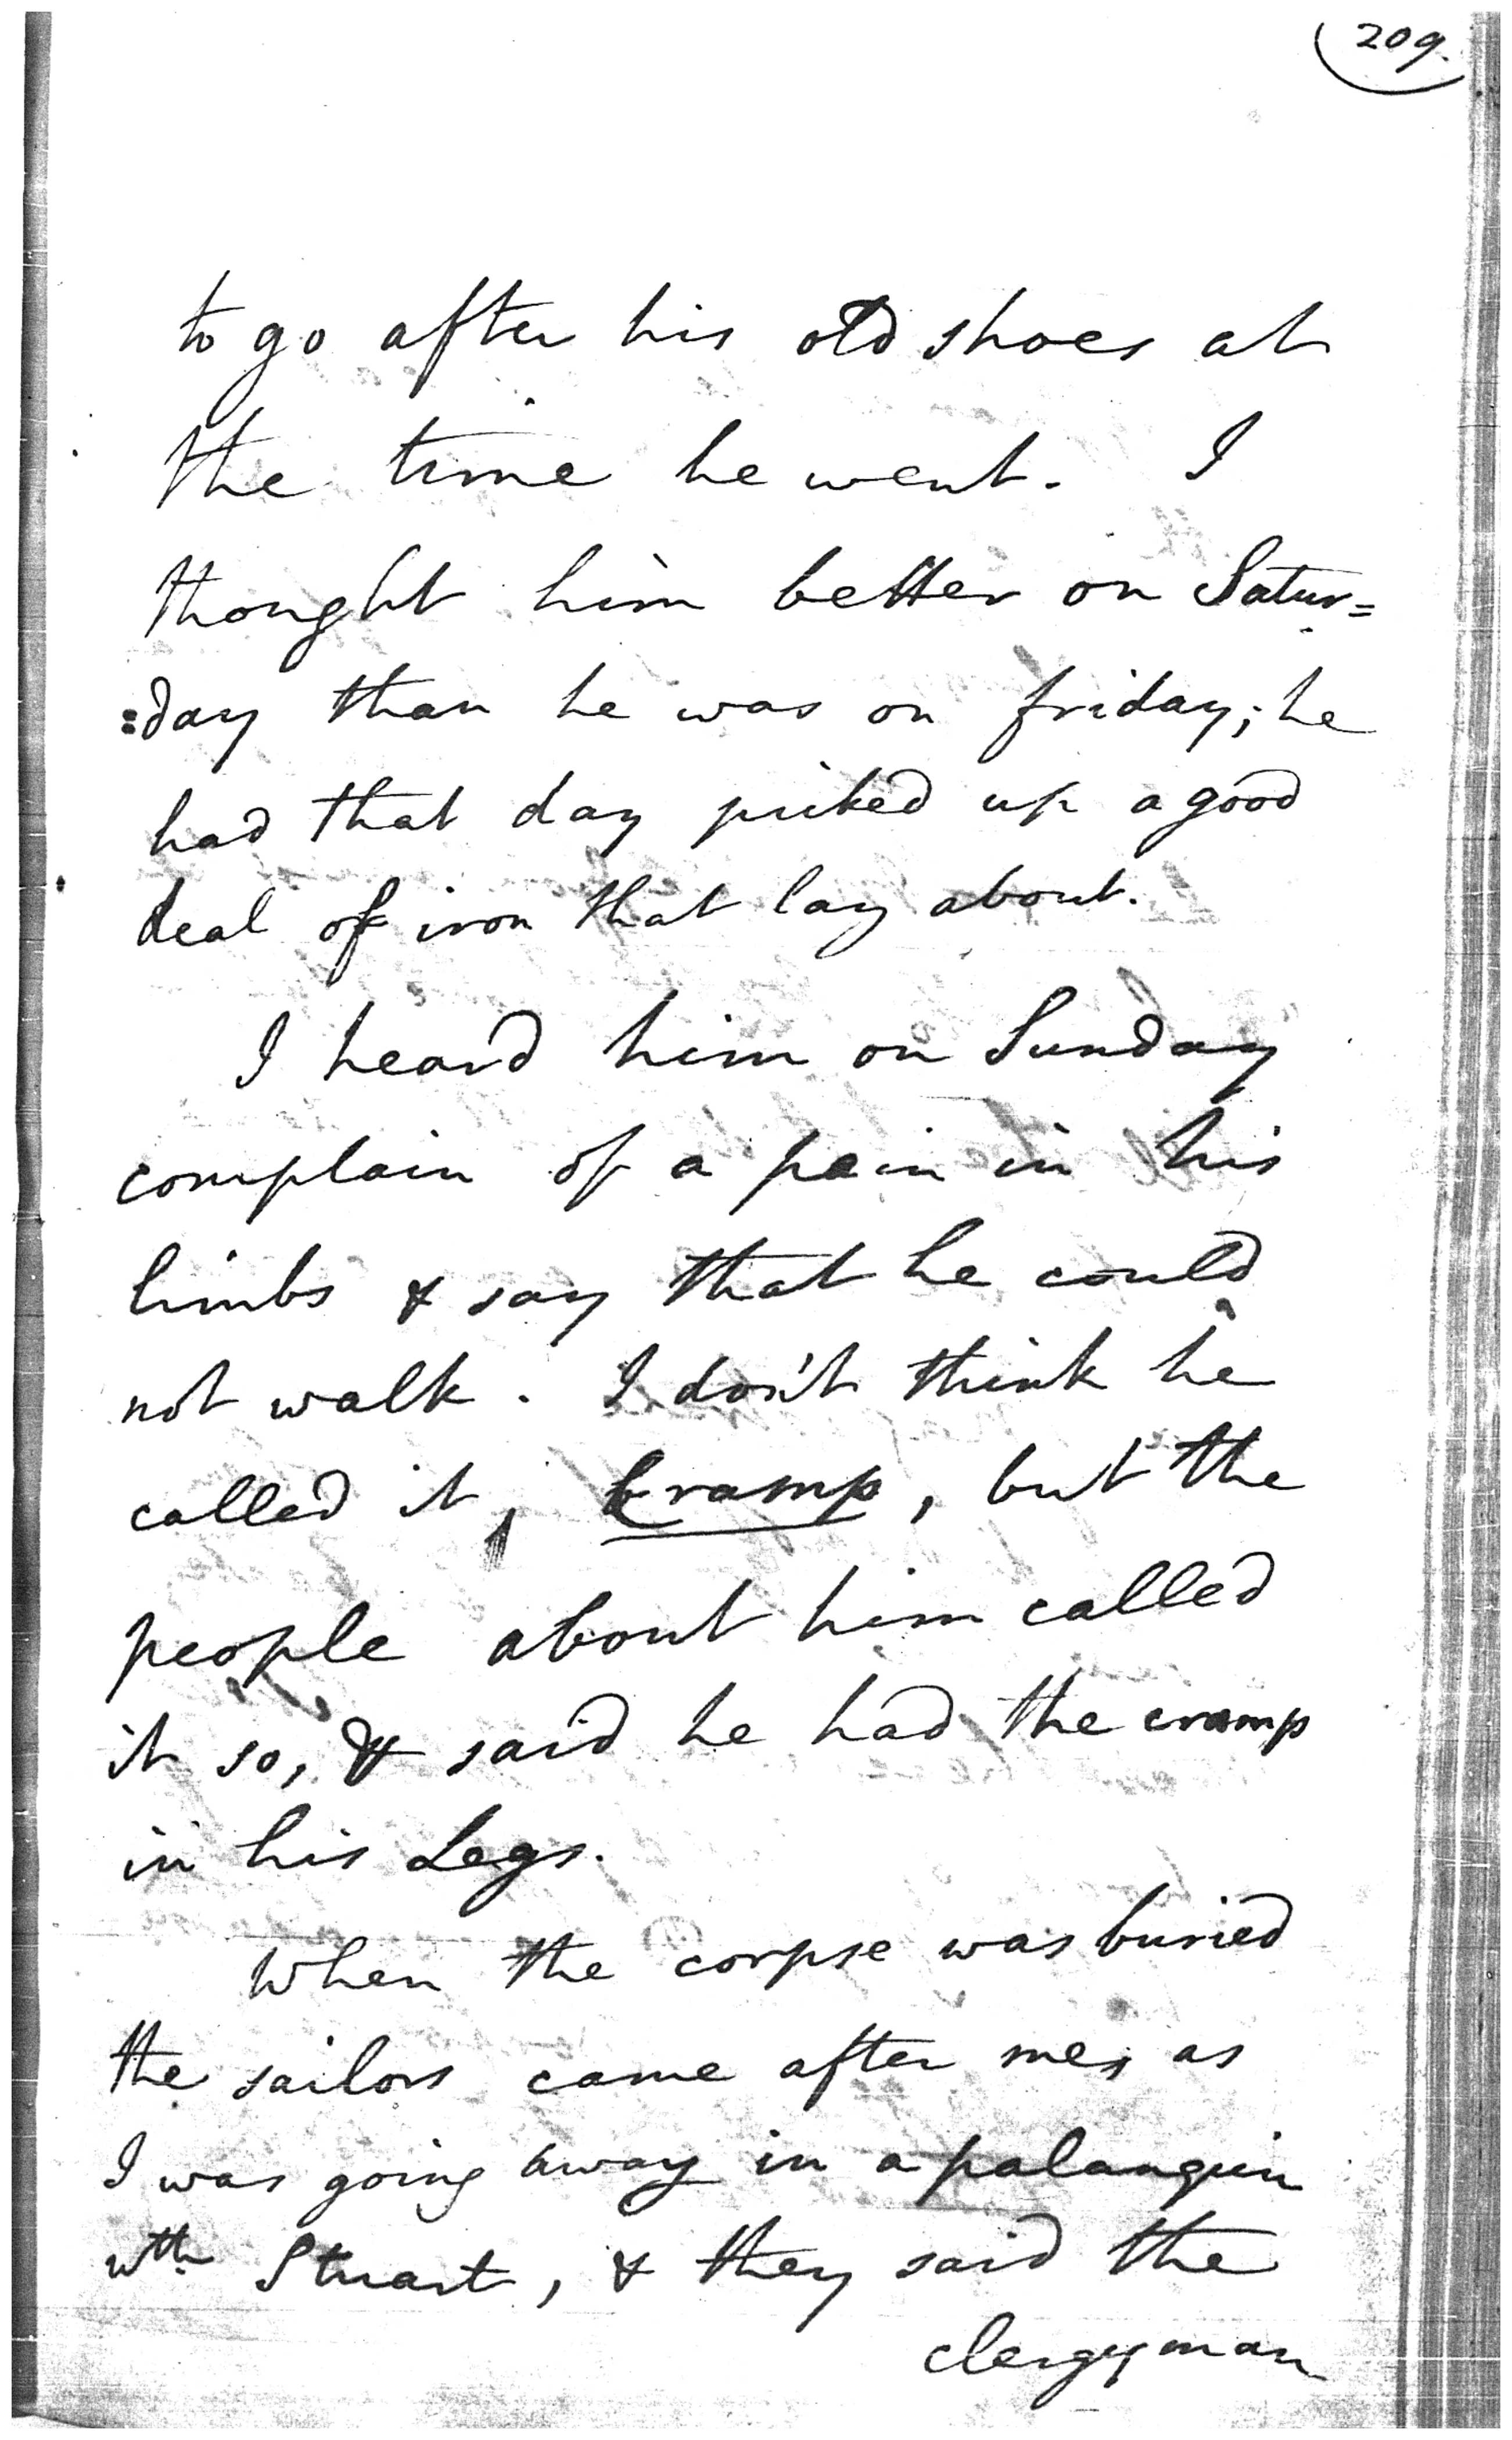 209.
to go after his old shoes at
the time he went. I
thought him better on Satur=
:day than he was on friday; he
had that day picked up a good
deal of iron that lay about.
I heard him on Sunday
complain of a pain in his
limbs & say that he could
not walk. I don't think he
called it, Cramp, but the
people about him called
it so, & said he had the cramp
in his Legs.
When the corpse was buried
the sailors came after me, as
I was going away in a palanquin
wth Stuart, & they said the
clergyman